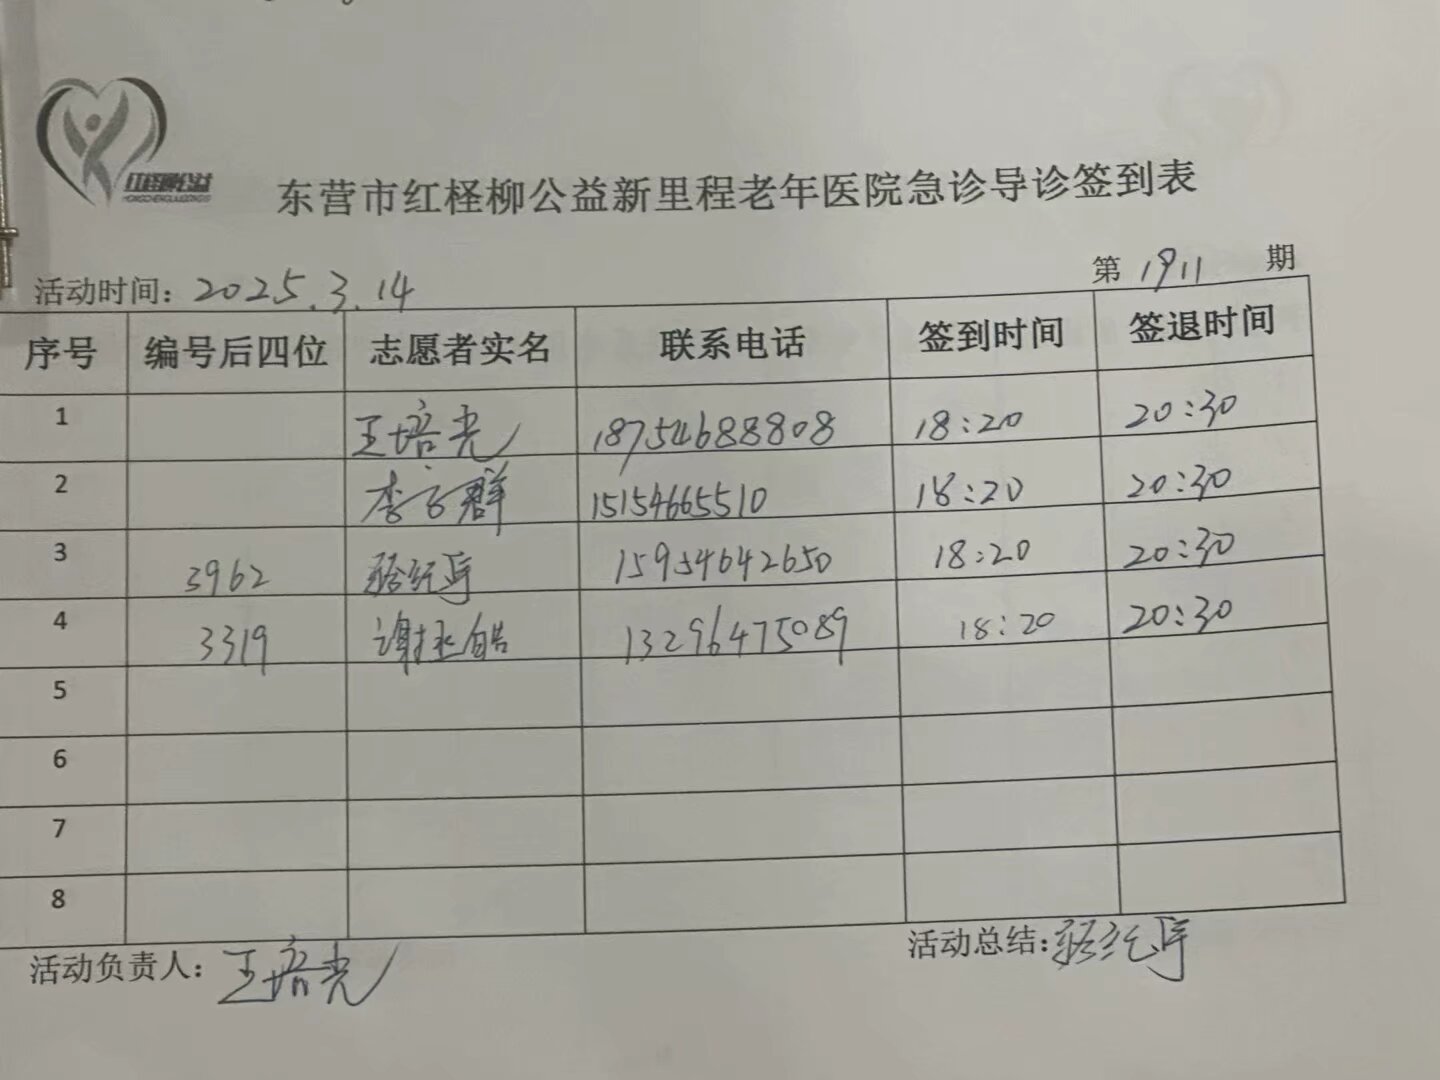 红柽柳公益
HONGCHENGLIUGONGYI
东营市红柽柳公益新里程老年医院急诊导诊签到表
活动时间：2025.3.14 第 1911 期
序号 编号后四位 志愿者实名 联系电话 签到时间 签退时间
1 王培光 18754688808 18:20 20:30
2 李子群 15154665510 18:20 20:30
3 3962 15954642650 18:20 20:30
4 3319 谢 13296475089 18:20 20:30
5
6
7
8
活动负责人：王培光 活动总结：